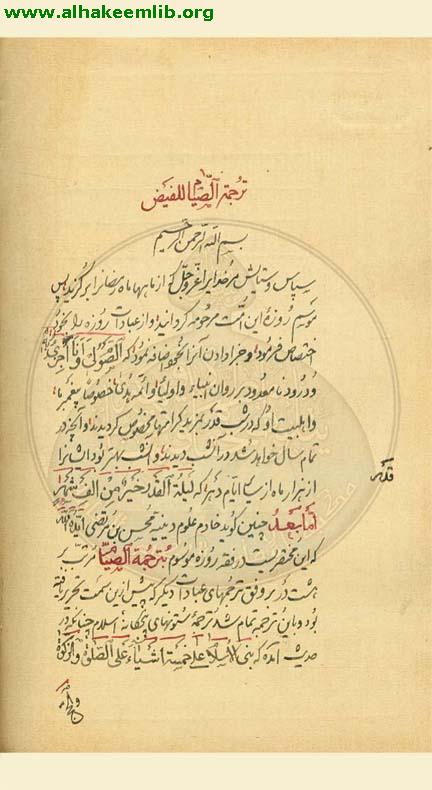 www.alhakeemlib.org
ترجمة الصیام للفیض
بسم الله الرحمن الرحیم
سپاس و ستایش مر خدایرا عز و جل که از ماهها ماه رمضانرا برگزید پس
موسم روزهٔ این امت مرحومه گردانید و از عبادات روزه را بخود
اختصاص فرمود و جزا دادن آنرا بخود اضافه نمود که الصوم لی و انا اجزی
و درود نامعدود بر روان انبیاء و اولیا و ائمه هدی خصوصا پیغمبر ما
و اهلبیت او که در شب قدر بمزید کرامتها مخصوص گردیدند و آنچه در
تمام سال خواهد شد در آنشب دیدند و آنشب بهتر بود ایشانرا
از هزار ماه از سایر ایام دهر که لیلة القدر خیر من الف شهر
اما بعد چنین گوید خادم علوم دینیه محسن بن مرتضی ایده الله
که این مختصریست در فقه روزه موسوم بترجمة الصیام مرتب بر
هشت در بر وفق ترجمهای عبادات دیگر که پیش ازین سمت تحریر یافته
بود و باین ترجمه تمام شد ترجمهٔ ستونهای پنجگانهٔ اسلام چنانکه در
حدیث آمده که بنی الاسلام علی خمسة اشیاء علی الصلوة و الزکوة